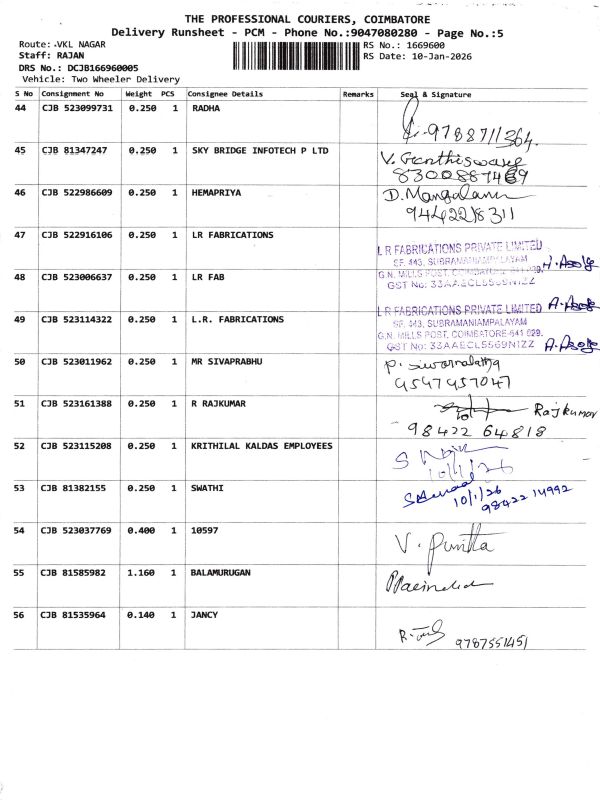 THE PROFESSIONAL COURIERS, COIMBATORE
Delivery Runsheet - PCM - Phone No.:9047080280 - Page No.:5
Route: .VKL NAGAR
RS No.: 1669600
Staff: RAJAN
RS Date: 10-Jan-2026
DRS No.: DCJB166960005
Vehicle: Two Wheeler Delivery
S No Consignment No Weight PCS Consignee Details Remarks Seal & Signature
44 CJB 523099731 0.250 1 RADHA
9788711364.
45 CJB 81347247 0.250 1 SKY BRIDGE INFOTECH P LTD
8300887469
46 CJB 522986609 0.250 1 HEMAPRIYA D. Mangalam
9442218311
47 CJB 522916106 0.250 1 LR FABRICATIONS
L R FABRICATIONS PRIVATE LIMITED
SF. 443, SUBRAMANIAMPALAYAM
48 CJB 523006637 0.250 1 LR FAB
G.N. MILLS POST, COIMBATORE-641 029.
GST No: 33AAECL5569N1ZZ
L R FABRICATIONS PRIVATE LIMITED
49 CJB 523114322 0.250 1 L.R. FABRICATIONS
SF. 443, SUBRAMANIAMPALAYAM
G.N. MILLS POST, COIMBATORE-641 029.
GST No: 33AAECL5569N1ZZ
50 CJB 523011962 0.250 1 MR SIVAPRABHU
P. Siwarnalatha
9547957047
51 CJB 523161388 0.250 1 R RAJKUMAR
Rajkumar
98422 64818
52 CJB 523115208 0.250 1 KRITHILAL KALDAS EMPLOYEES
10/1/26
53 CJB 81382155 0.250 1 SWATHI
10/1/26
98422 14992
54 CJB 523037769 0.400 1 10597
V. Punitha
55 CJB 81585982 1.160 1 BALAMURUGAN
56 CJB 81535964 0.140 1 JANCY
9787551451